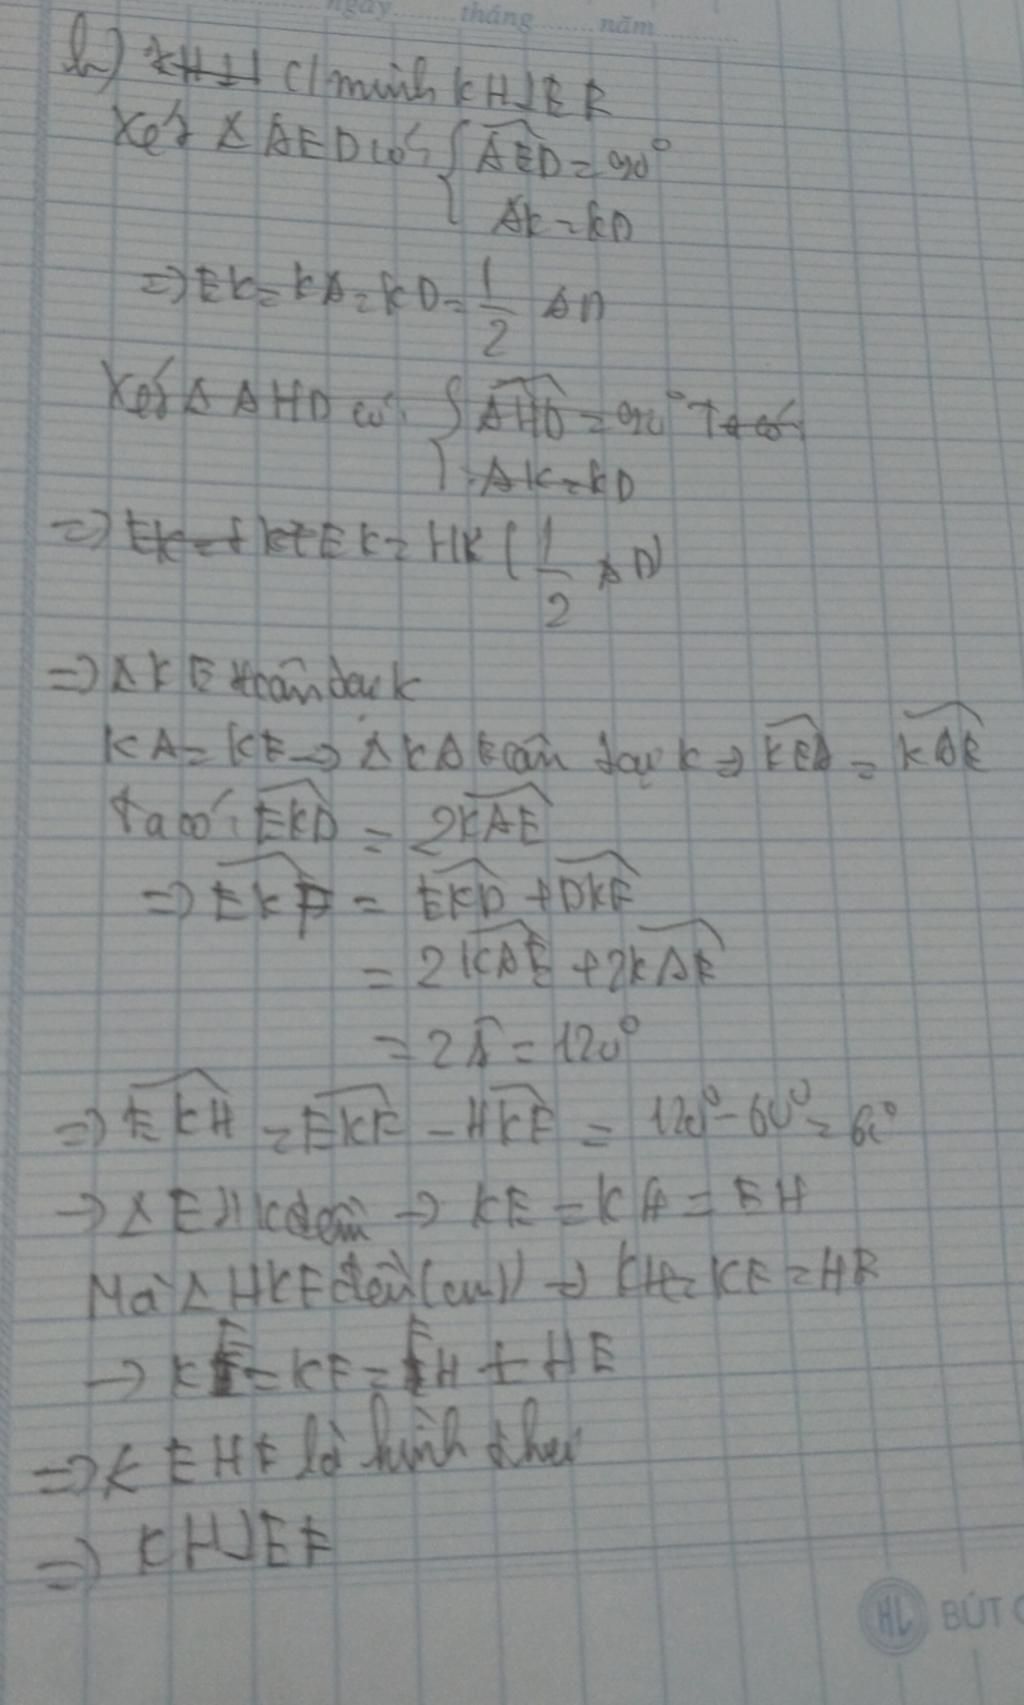 ngày tháng năm
b) C/minh KH⊥EF
Xét Δ AED có { AED = 90°
AK = KD
=> EK = KA = KD = 1/2 AD
Xét Δ AHD có: { AHD = 90° Ta có:
AK = KD
=> EK = HK (1/2 AD)
=> Δ KE cân tại K
KA = KF → Δ KAF cân tại K => KFA = KAF
Ta có: EKD = 2KAE
=> EKF = EKD + DKF
= 2KAE + 2KAF
= 2A = 120°
=> EKH = EKF - HKF = 120° - 60° = 60°
→ Δ EHK đều → KE = KH = EH
Mà Δ HKF đều (cmt) → KH = KF = HF
→ KE = KF = FH = HE
=> KEHF là hình thoi
=> KH⊥EF
HL BÚT